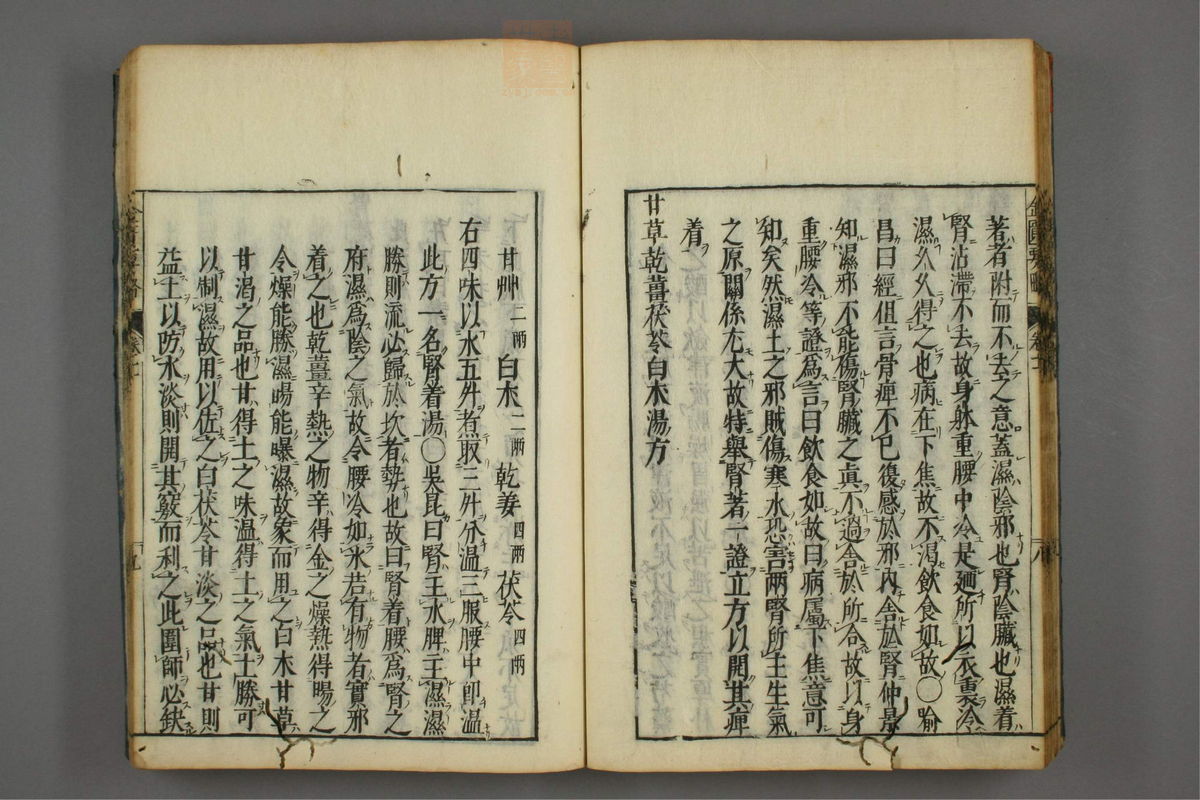 著者附而不去之意蓋濕陰邪也腎陰臟也濕着
腎沾滯不去故身躰重腰中冷是廼所以衣裏冷
濕久久得之也病在下焦故不渴飲食如故〇喻
昌曰經但言骨痺不已復感於邪內舍於腎仲景
知濕邪不能傷腎臟之眞不過舍於所合故以身
重腰冷等證爲言曰飲食如故曰病屬下焦意可
知矣然濕土之邪賊傷寒水恐害兩腎所主生氣
之原關係尤大故特舉腎著一證立方以開其痺
着
甘草乾薑茯苓白朮湯方
甘艸二兩白朮二兩乾姜四兩茯苓四兩
右四味以水五升煮取三升分溫三服腰中卽溫
此方一名腎着湯〇吳昆曰腎王水脾王濕濕
勝則流必歸於坎者勢也故曰腎着腰爲腎之
府濕爲陰之氣故令腰冷如氷若有物者實邪
着之也乾薑辛熱之物辛得金之燥熱得暘之
令燥能勝濕暘能曝濕故象而用之白朮甘草
甘溫之品也甘得土之味溫得土之氣土勝可
以制濕故用以佐之白茯苓甘淡之品也甘則
益土以防水淡則開其竅而利之此圍師必缺